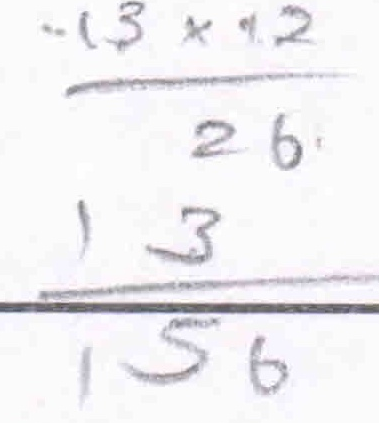 13 x 12
26
13
156